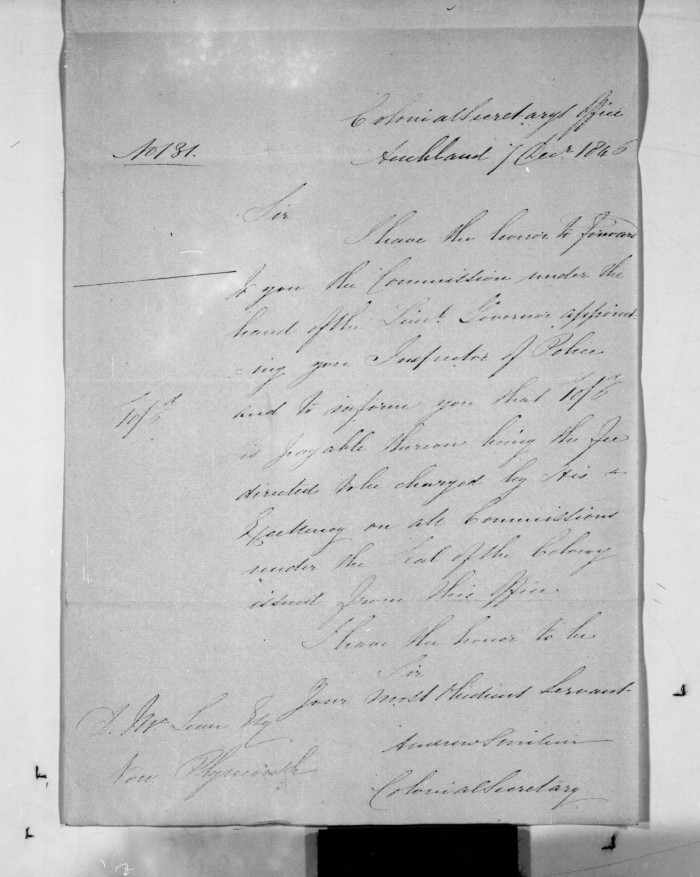 Colonial Secretary's Office
No 131.
Auckland 7 Decr. 1846
Sir
I have the honor to forward
to you the Commission under the
hand of the Lieut. Governor appoint-
=ing you Inspector of Police
and to inform you that
is payable thereon being the Fee
directed to be charged by His
Excellency on all Commissions
under the Seal of the Colony
issued from this Office
I have the honor to be
Sir
Your most Obedient Servant
Andrew Sinclair
Colonial Secretary
D. McLean Esq
New Plymouth